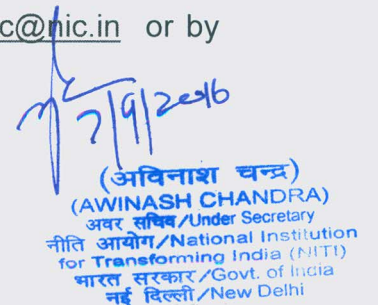 c@nic.in or by
7/9/2016
(अविनाश चन्द्र)
(AWINASH CHANDRA)
अवर सचिव/Under Secretary
नीति आयोग/National Institution
for Transforming India (NITI)
भारत सरकार/Govt. of India
नई दिल्ली/New Delhi